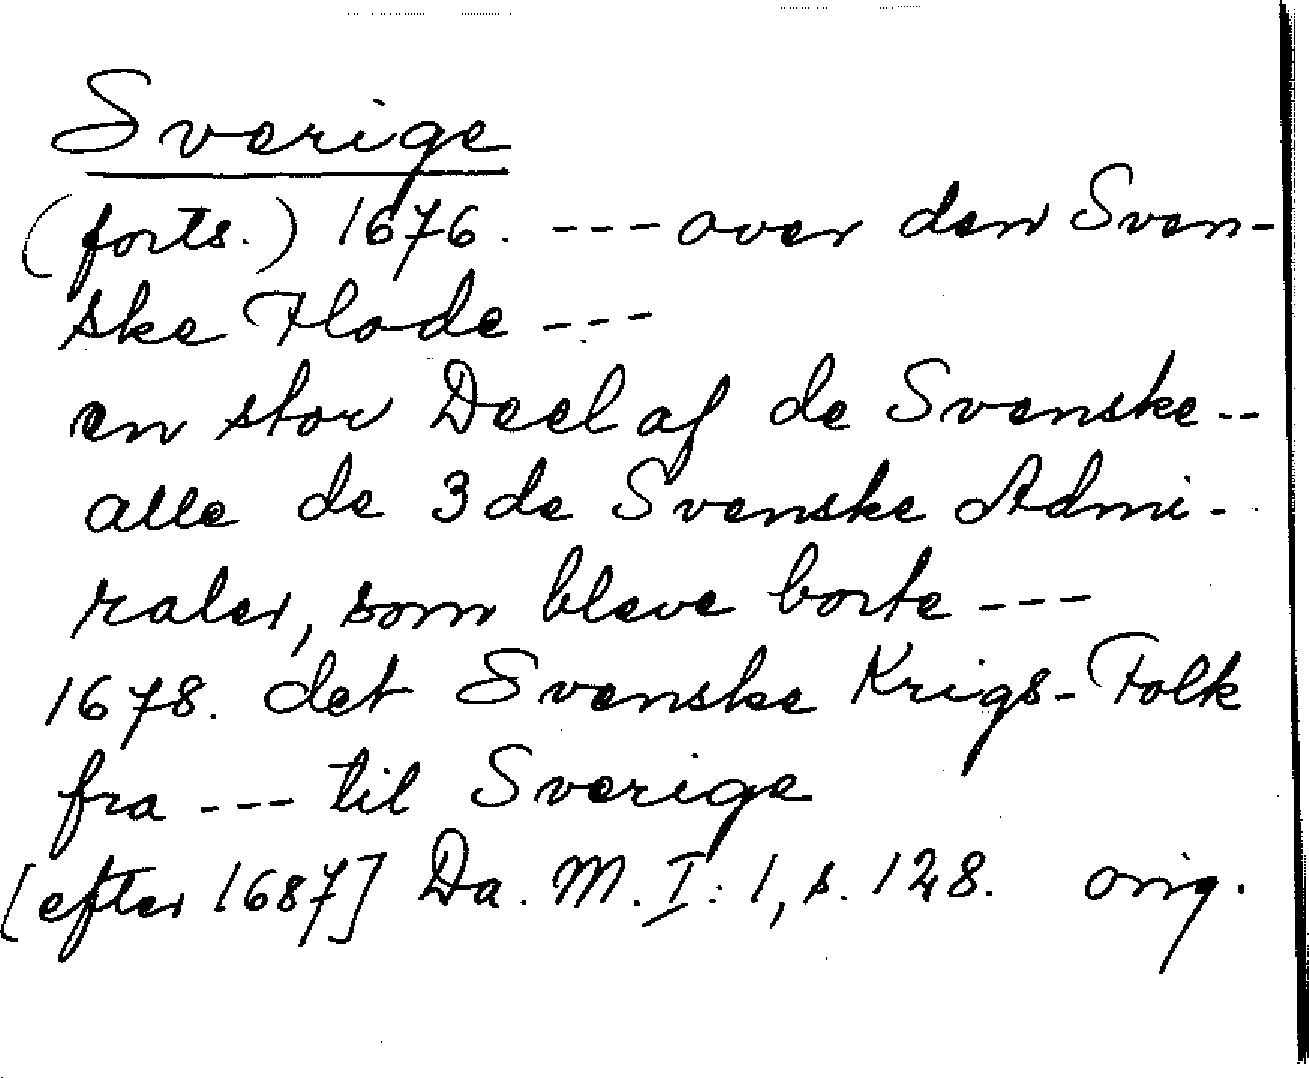 Sverige
(forts.) 1676. --- over den Sven-
ske Flode ---
en stor Deel af de Svenske --
alle de 3 de Svenske Admi-
raler, som bleve borte ---
1678. det Svenske Krigs-Folk
fra --- til Sverige
[efter 1687] Da. M. I: 1, s. 128. orig.